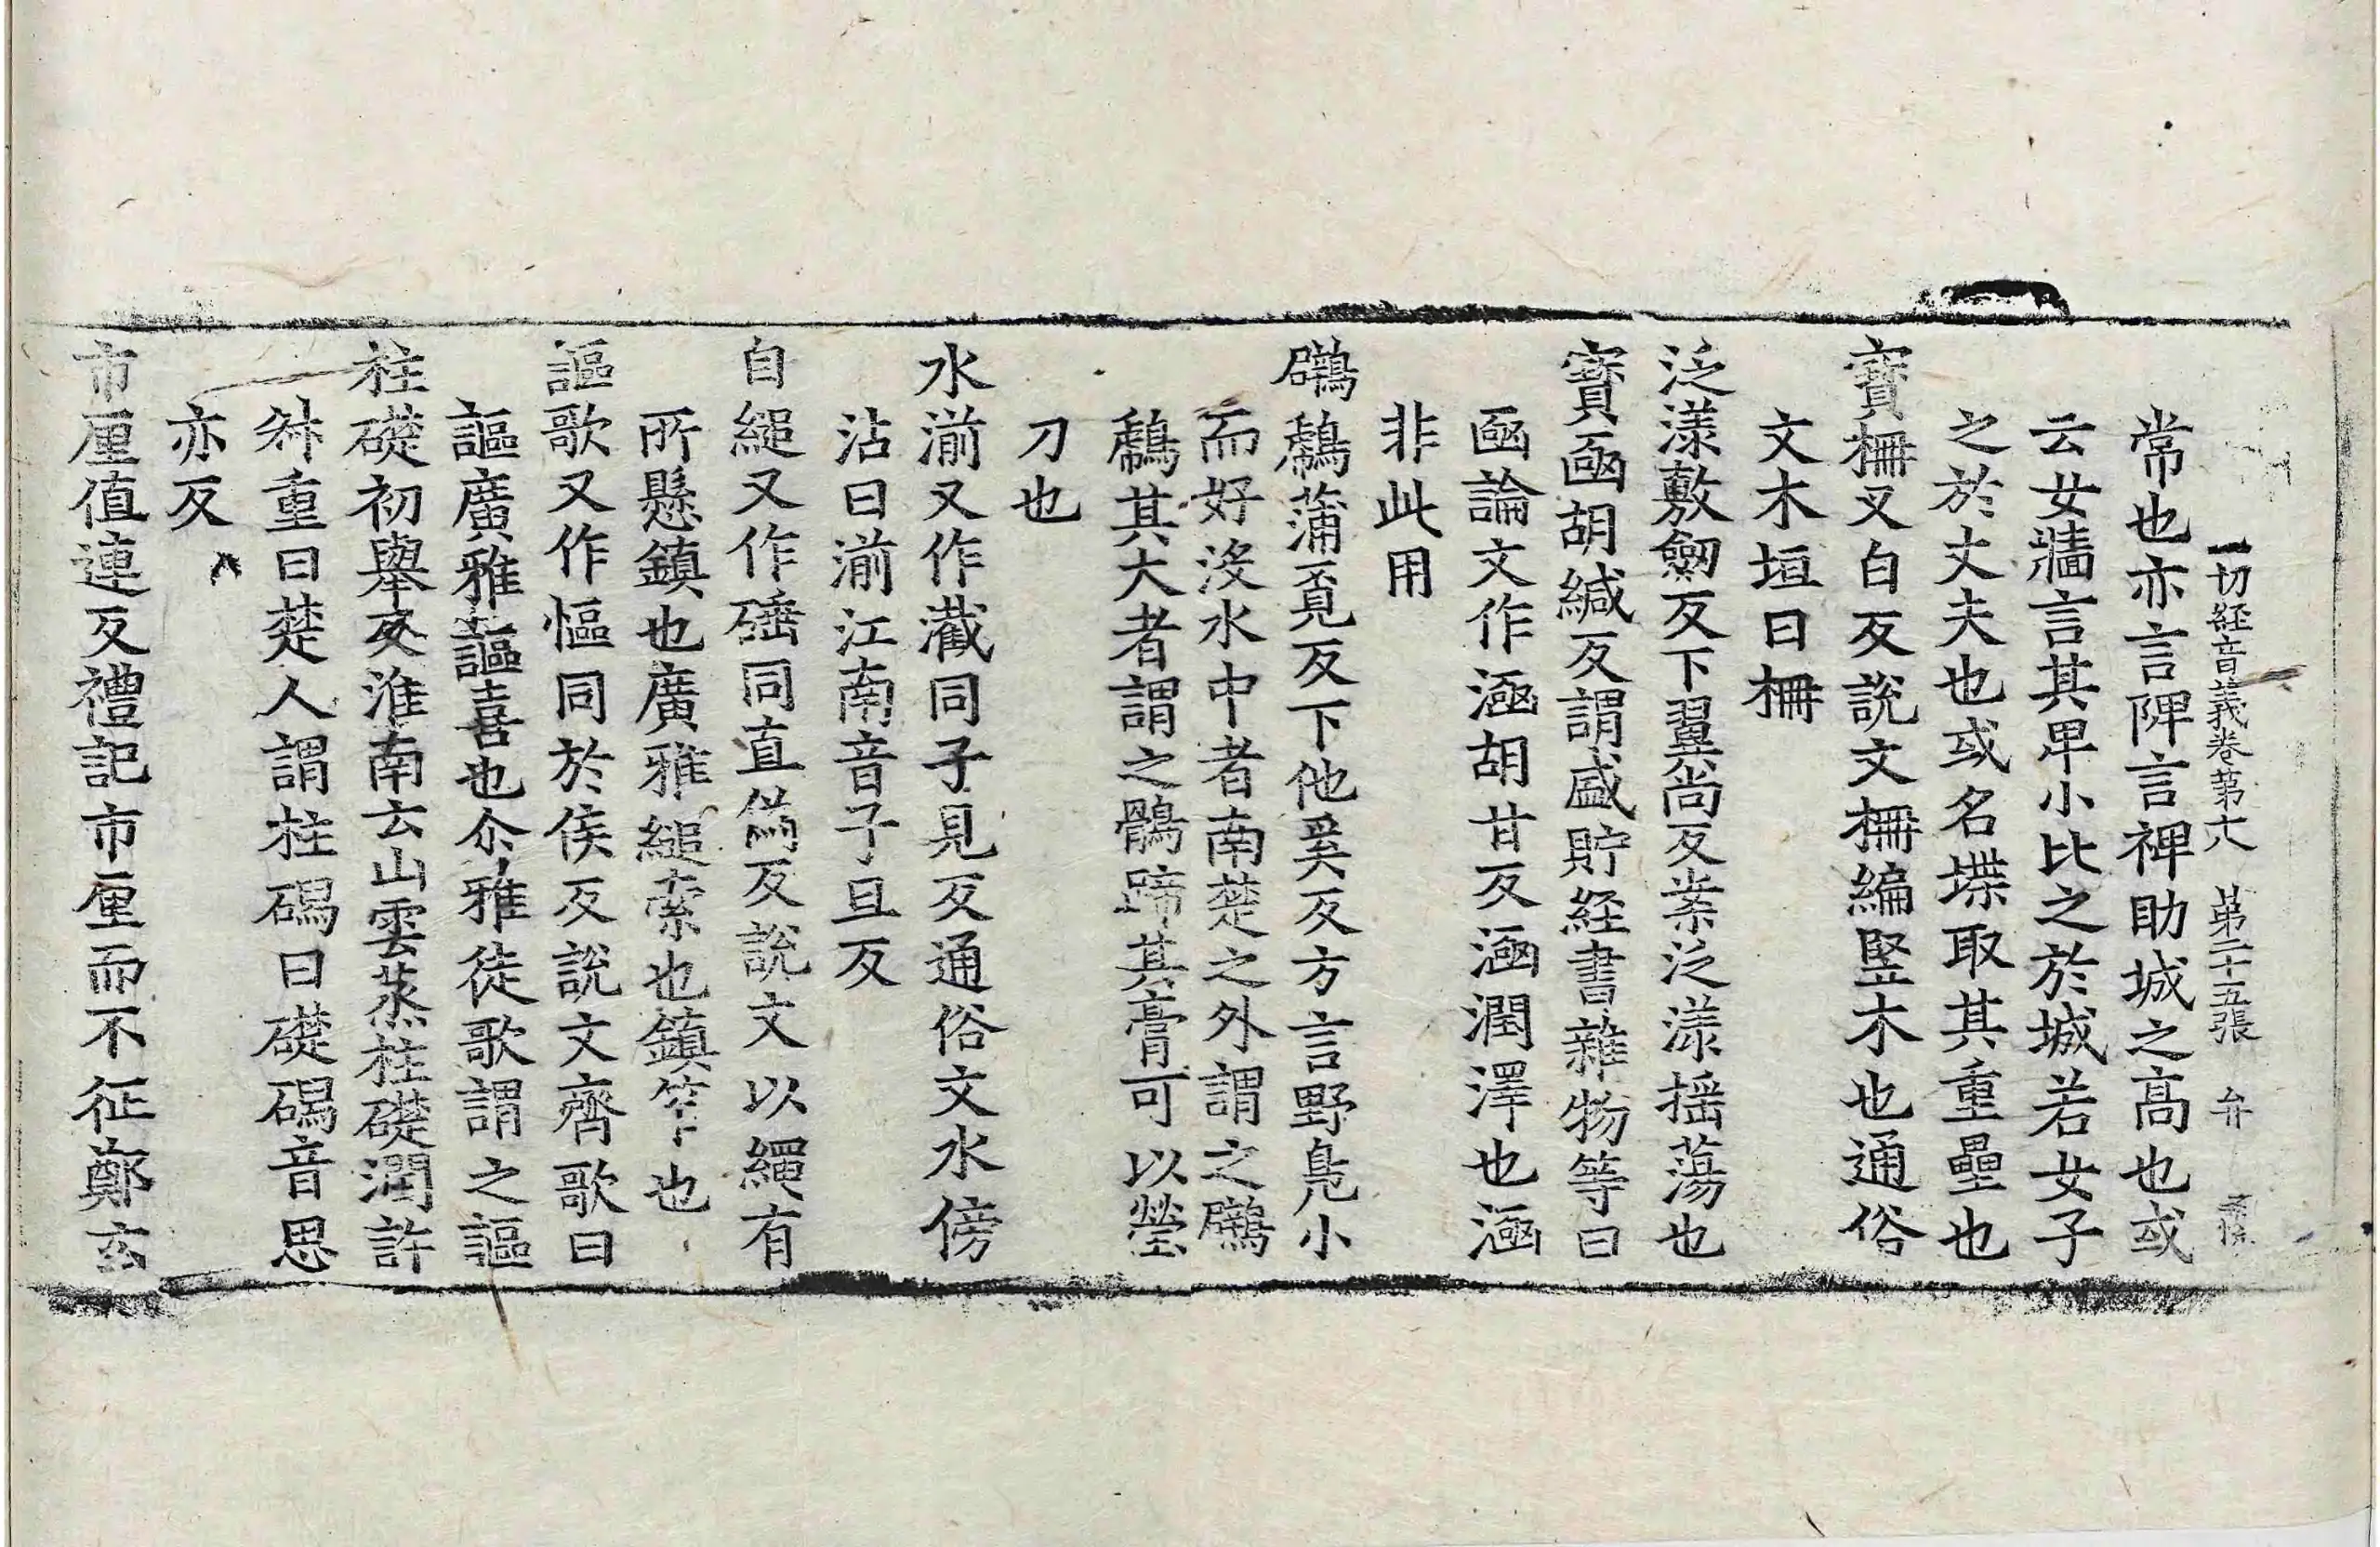 一切経音義卷第十八　第二十五張　弁
常也亦言陴言裨助城之高也或
云女牆言其卑小比之於城若女子
之於丈夫也或名堞取其重疊也
寶柵叉白反說文柵編竪木也通俗
文木垣曰柵
泛漾敷劒反下翼尚反案泛漾摇蕩也
寶函胡緘反謂盛貯経書雜物等曰
函論文作涵胡甘反涵潤澤也涵
非此用
鸊鷉蒲覓反下他奚反方言野鳧小
而好沒水中者南楚之外謂之鸊
鷉其大者謂之鶻蹄其膏可以瑩
刀也
水湔又作灒同子見反通俗文水傍
沾曰湔江南音子旦反
自縋又作硾同直偽反說文以繩有
所懸鎮也廣雅縋索也鎮笮也
謳歌又作慪同於侯反說文齊歌曰
謳廣雅謳喜也尒雅徒歌謂之謳
柱礎初舉反淮南云山雲蒸柱礎潤許
舛重曰楚人謂柱碣曰礎碣音思
亦反
市厘值連反禮記市厘而不征鄭玄